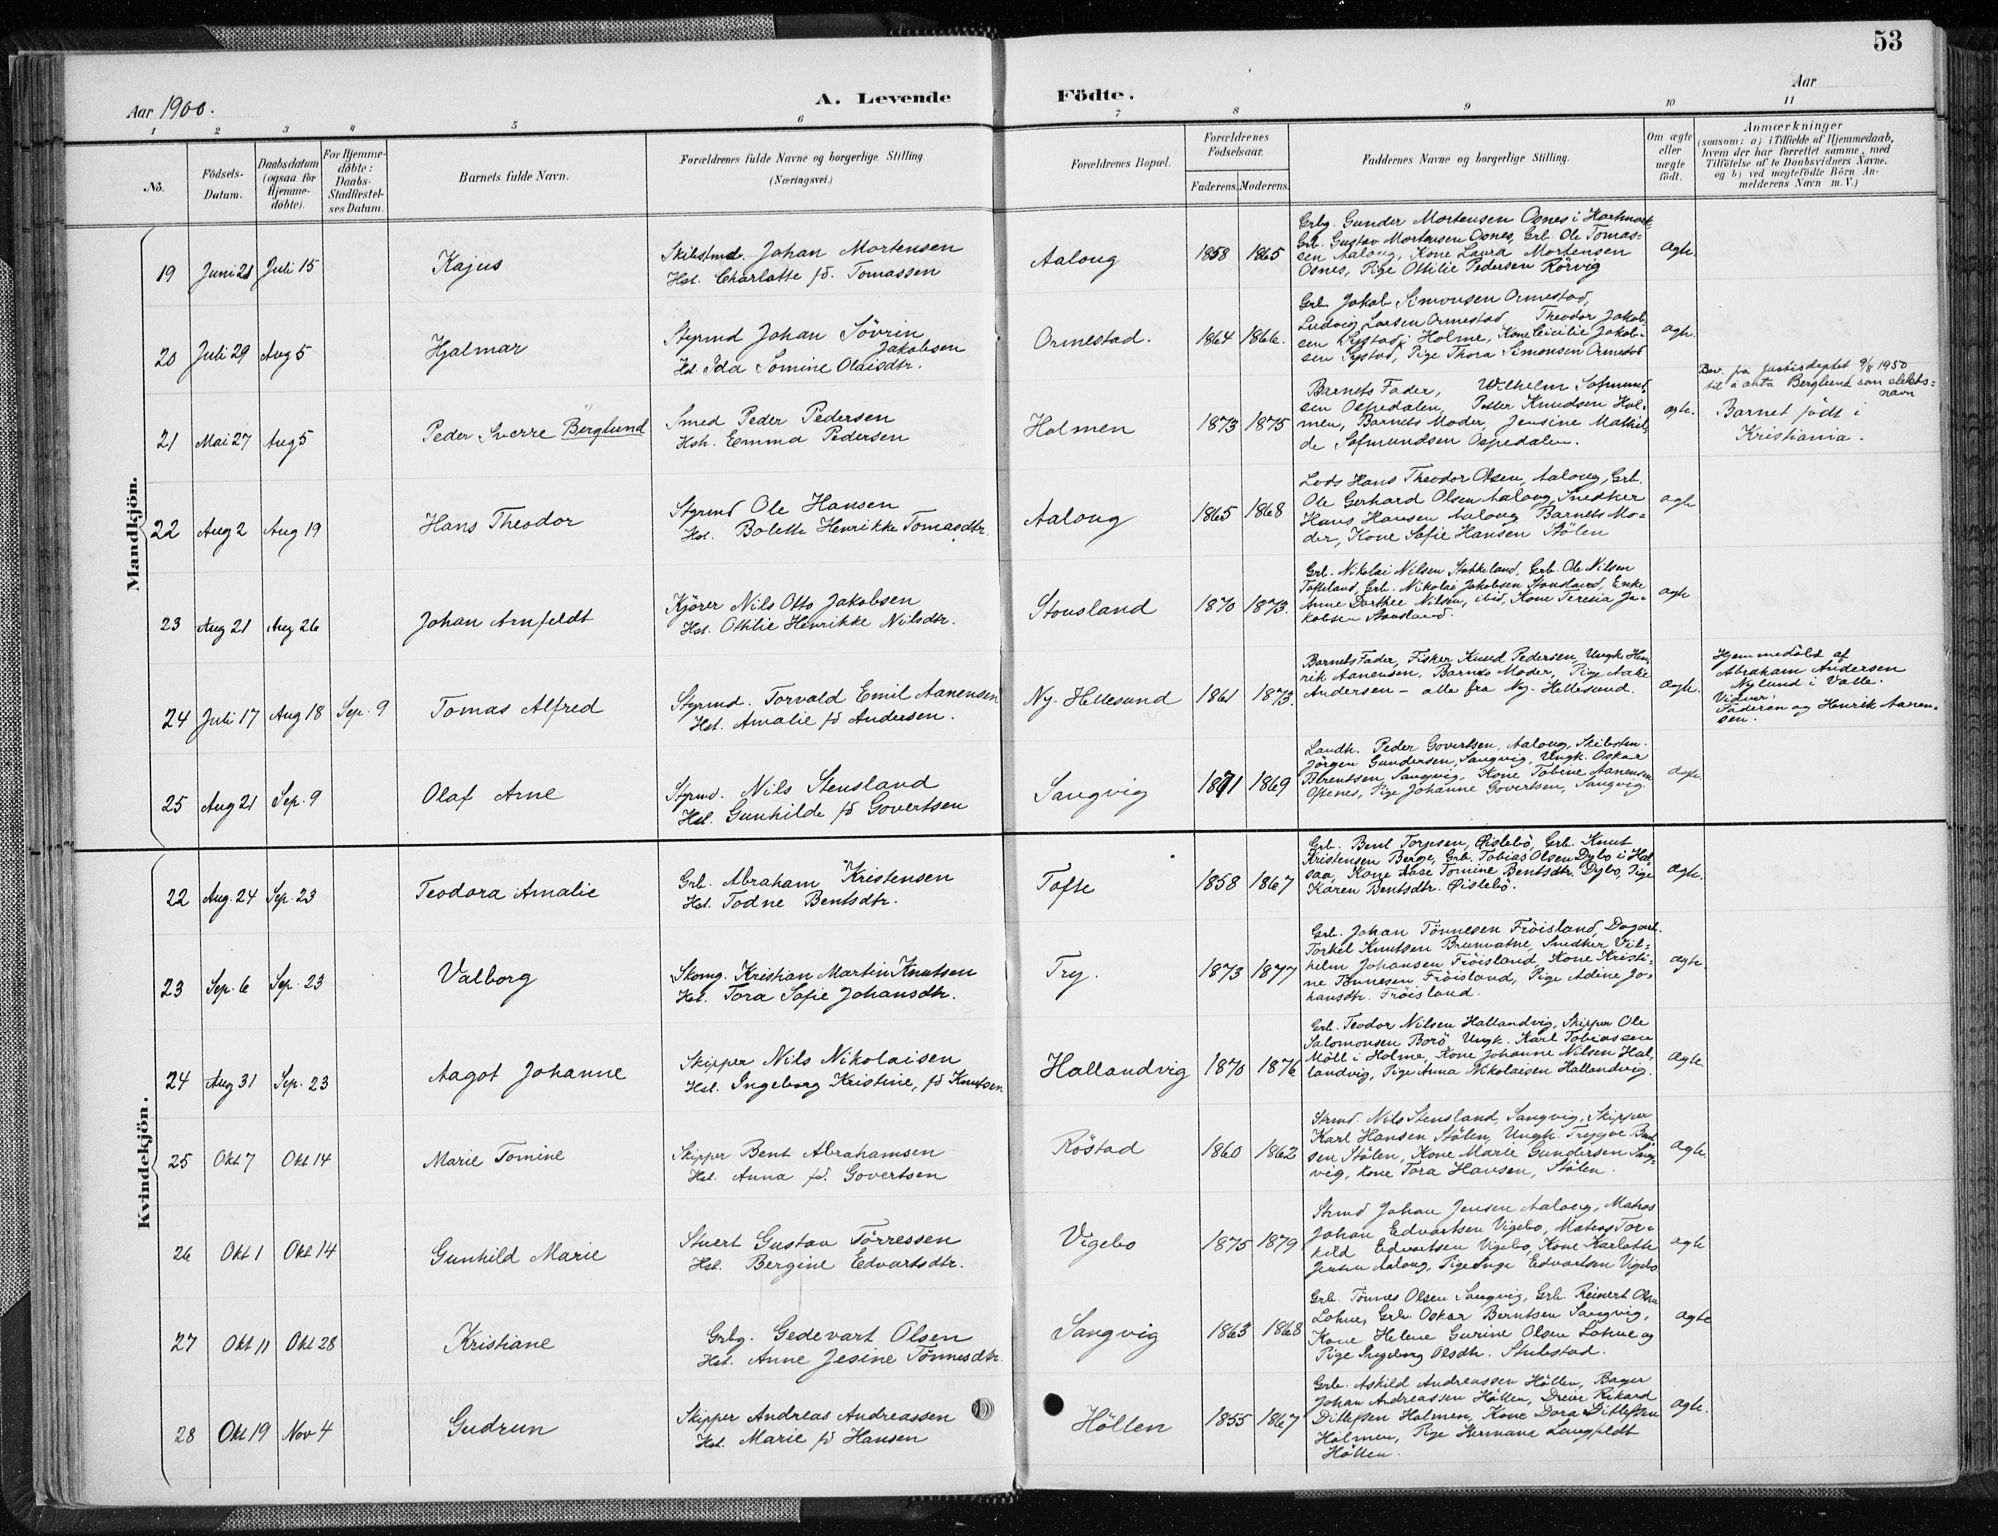 53
Aar 1900.
A. Levende Födte.
Aar
1 2 3 4 5 6 7 8 9 10 11
No.
Födsels-Datum.
Daabsdatum (ogsaa for Hjemme-döbte).
For Hjemme-döbte: Daabs-Stadfæstel-ses Datum.
Barnets fulde Navn.
Forældrenes fulde Navne og borgerlige Stilling.
(Næringsvei.)
Forældrenes Bopæl.
Forældrenes Födselsaar.
Faderens. Moderens.
Faddernes Navne og borgerlige Stilling.
Om ægte eller uægte födt.
Anmærkninger
(saasom: a) i Tilfælde af Hjemmedaab,
hvem der har forrettet samme, med
Tilföielse af to Daabsvidners Navne.
og b) ved uægtefödte Börn An-
melderens Navn m. V.)
Mandkjön.
19 Juni 21 Juli 15 Kajus
Skibstmd. Johan Mortensen
Hst. Charlotte fd. Tomassen
Aalong 1858 1865
Grbg. Gunder Mortensen Osnes i Hartmark
Grb. Gustav Mortensen Osnes, Grb. Ole Tomas-
sen Aalong, Kone Laura Mortensen
Osnes, Pige Ottilie Pedersen Rörvig
ægte.
20 Juli 29 Aug 5 Hjalmar
Styrmd Johan Sövrin
Jakobsen
Hst. Ida Tomine Olaisdtr.
Ormestad. 1864 1866.
Grb. Jakob Simonsen Ormestad,
Ludvig Larsen Ormestad Theodor Jakob-
sen Rystad i Holme, Kone Cicilie Jakob-
sen Rystad, Pige Thora Simonsen Ormestad
ægte.
21 Mai 27 Aug 5 Peder Sverre Berglund
Smed Peder Pedersen
Hst. Emma Pedersen
Holmen 1873 1875
Barnets Fader, Wilhelm Sofmund
sen Ospedalen, Petter Knudsen Hol-
men, Barnets Moder, Jensine Mathil-
de Sofmundsen Ospedalen.
ægte.
Bev. fra justisdeptet 9/8 1950
til å anta Berglund som slekts-
navn
Barnet födt i
Kristiania.
22 Aug 2 Aug 19 Hans Theodor
Styrmd Ole Hansen
Hst. Bolette Henrikke Tomasdtr.
Aalong 1865 1868
Lods Hans Theodor Olsen, Aalong, Grb.
Ole Gerhard Olsen Aalong, Snedker
Hans Hansen Aalong, Barnets Mo-
der, Kone Sofie Hansen Stölen
ægte
23 Aug 21 Aug 26 Johan Arnfeldt
Kjörer Nils Otto Jakobsen
Hst. Ottilie Henrikke Nilsdtr.
Stousland 1870 1873.
Grb. Nikolai Nilsen Stokkeland, Grb. Ole Nilsen
Tofteland, Grb. Nikolai Jakobsen Stousland, Enke
Anne Dorthee Nilsen, ibid, Kone Teresia Ja-
kobsen Stousland.
ægte
24 Juli 17 Aug 18 Sep. 9 Tomas Alfred
Styrmd. Torvald Emil Aanensen
Hst. Amalie fd Andersen.
Ny-Hellesund 1861 1873.
Barnets Fader, Fisker Knud Pedersen, Ungk. Hen-
rik Aanensen, Barnets Moder, Pige Aake
Andersen - alle fra Ny-Hellesund.
ægte.
Hjemmedöbt af
Abraham Andersen
Nylund i Valle.
Vidner:
Faderen og Henrik Aanen-
sen.
25 Aug 21 Sep. 9 Olaf Arne
Styrmd. Nils Stensland
Hst. Gunhilde fd Govertsen
Sangvig 1871 1869
Landh. Peder Govertsen, Aalong, Skibstm.
Jörgen Gundersen, Sangvig, Ungk. Oskar
Berentsen, Sangvig, Kone Tobine Aanensen
Oftenes, Pige Johanne Govertsen, Sangvig.
ægte.
Kvindekjön.
22 Aug. 24 Sep. 23 Teodora Amalie
Grb. Abraham Kristensen
Hst. Todne Bentsdtr.
Tofte 1858 1867
Grb. Bent Torjesen, Öislebö, Grb. Knut
Kristensen Berge, Grb. Tobias Olsen Dybo i Hal
saa, Kone Aase Tomine Bentsdtr. Dybo, Pige
Karen Bentsdtr. Öislebö.
ægte.
23 Sep. 6 Sep. 23 Valborg
Skomg. Kristian Martin Knutsen
Hst. Tora Sofie Johansdtr.
Try. 1873 1877
Grb. Johan Tönnesen Fröisland, Dagarb.
Torkel Knutsen Brunvatne, Snedker Vil-
helm Johansen Fröisland, Kone Kristi-
ne Tönnesen Fröisland, Pige Adine Jo-
hansdtr. Fröisland.
ægte.
24 Aug 31 Sep. 23 Aagot Johanne
Skipper Nils Nikolaisen
Hst. Ingeborg Kristine, fd Knutsen
Hallandvig 1870 1876
Grb. Teodor Nilsen Hallandvig, Skipper Ole
Salomonsen Borö, Ungk. Karl Tobiassen
Möll i Holme, Kone Johanne Nilsen Hal-
landvig, Pige Anna Nikolaisen Hallandvig.
ægte.
25 Okt 7 Okt 14 Marie Tomine
Skipper Bent Abrahamsen
Hst. Anna fd. Govertsen
Röstad 1860 1862
Strmd. Nils Stensland, Sangvig, Skipper
Karl Hansen Stölen, Ungk. Trygve Bent-
sen Stölen, Kone Marie Gundersen Sang-
vig, Kone Tora Hansen, Stölen.
ægte.
26 Okt 1 Okt 14 Gunhild Marie
Stuert Gustav Törressen
Hst. Bergine Edvartsdtr.
Vigebo 1875 1879
Strmd Johan Jensen Aalong, Matros
Johan Edvartsen Vigebo, Matros Tor-
kild Edvartsen Vigebo, Kone Karlotte
Jensen Aalong, Pige Inge Edvartsen Vigebo
ægte
27 Okt 11 Okt 28 Kristiane
Grbg. Gedevart Olsen
Hst. Anne Jesine Tönnesdtr.
Sangvig 1863 1868
Grb. Tönnes Olsen Sangvig, Grb. Reinert Olsen
Lohne, Grb. Oskar Berntsen Sangvig,
Kone Helene Gurine Olsen Lohne og
Pige Ingeborg Olsdtr. Stubstad.
ægte
28 Okt 19 Nov 4 Gudrun
Skipper Andreas Andreassen
Hst. Marie fd Hansen
Höllen 1855 1867
Grb. Askild Andreassen Höllen, Bager
Johan Andreassen Höllen, Dreier Rikard
Ditlefsen Holmen, Kone Dora Ditlefsen
Holmen, Pige Hermana Langfeldt
Höllen.
ægte.